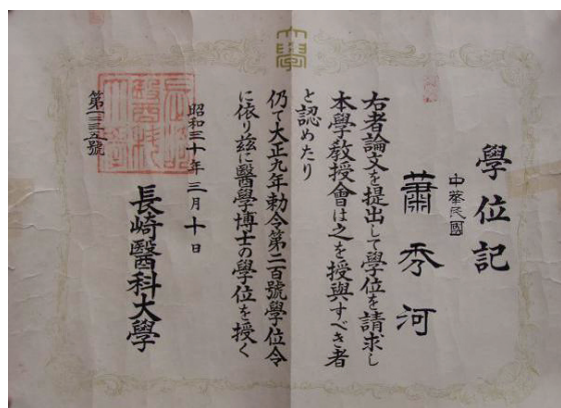 學位記
中華民國
蕭秀河
右者論文を提出して學位を請求し
本學教授會は之を授與すべき者
と認めたり
仍て大正九年勅令第二百號學位令
に依り茲に醫學博士の學位を授く
昭和三十年三月十日
長崎醫科大學
大學